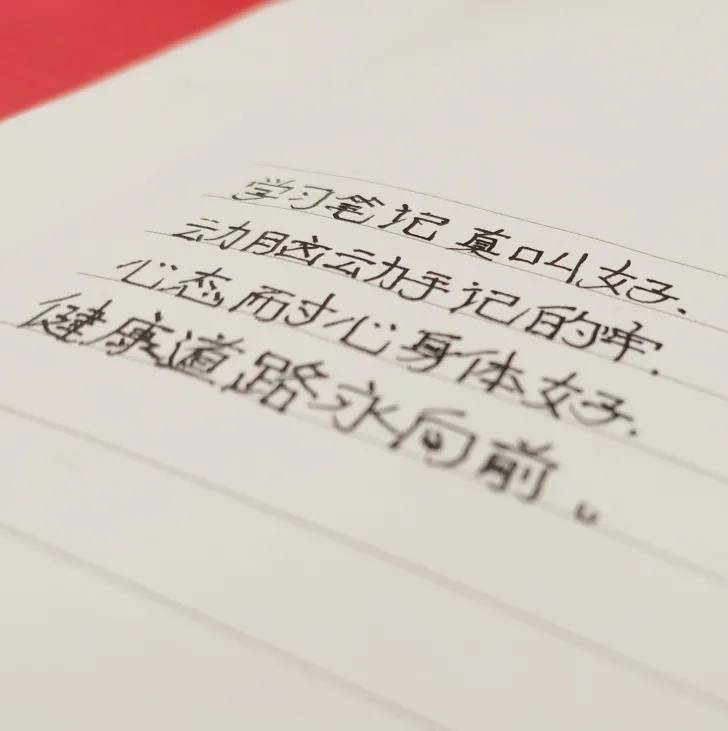 学习笔记真叫好.
动脑动手记的牢.
心态耐心身体好.
健康道路永向前。